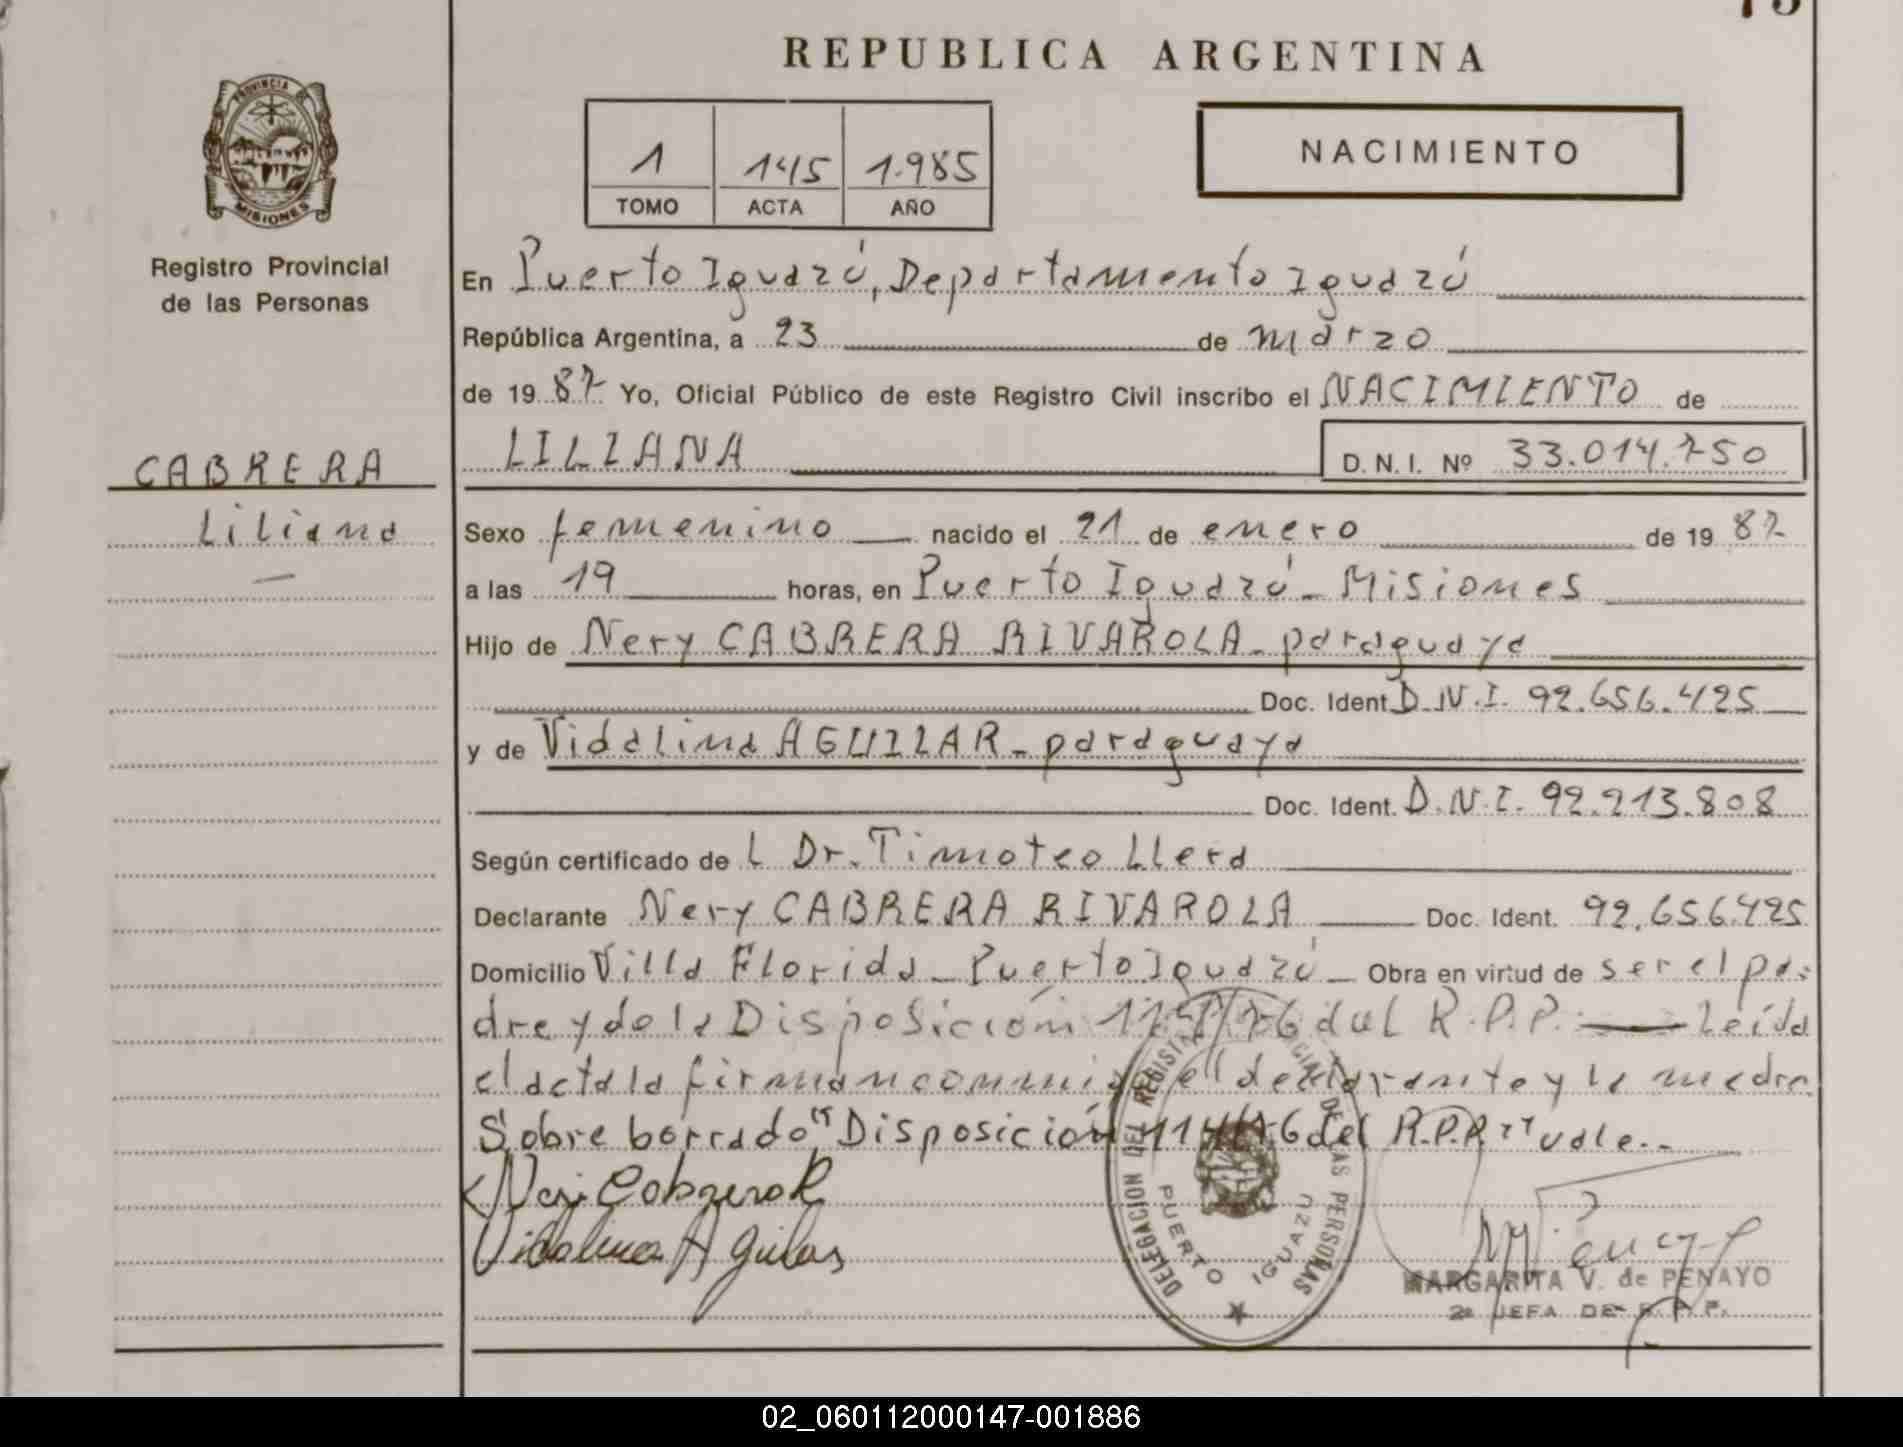 73
REPUBLICA ARGENTINA
PROVINCIA DE
MISIONES
Registro Provincial
de las Personas
1 145 1.985
TOMO ACTA AÑO
NACIMIENTO
En Puerto Iguazú, Departamento Iguazú
República Argentina, a 23 de marzo
de 19 87 Yo, Oficial Público de este Registro Civil inscribo el NACIMIENTO de
LILIANA D. N. I. Nº 33.014.750
CABRERA
Liliana
Sexo femenino nacido el 21 de enero de 19 87
a las 19 horas, en Puerto Iguazú - Misiones
Hijo de Nery CABRERA RIVAROLA - paraguaya
Doc. Ident. D.N.I. 92.656.425
y de Vidalina AGUILAR - paraguaya
Doc. Ident. D.N.I. 92.213.808
Según certificado de L Dr. Timoteo Llera
Declarante Nery CABRERA RIVAROLA Doc. Ident. 92.656.425
Domicilio Villa Florida - Puerto Iguazú - Obra en virtud de ser el pa-
dre y de la Disposición del R.P.P. Leida
el acta la firman conmigo el declarante y la madre
Sobre borrado "Disposición del R.P.P." vale.-
Vidalina Aguilar
DELEGACION DEL REGISTRO PROVINCIAL DE LAS PERSONAS
PUERTO IGUAZU
MARGARITA V. de PENAYO
2ª JEFA DE R. P. P.
02_060112000147-001886